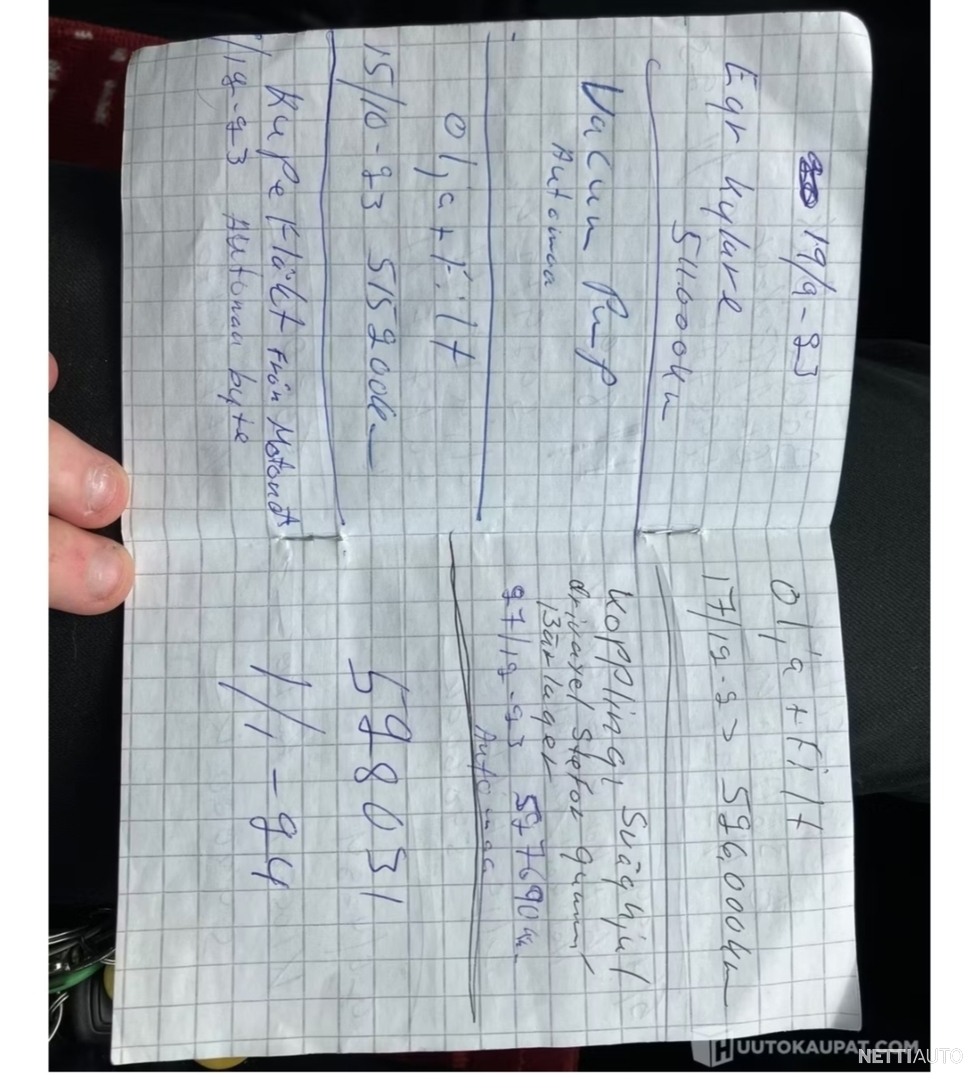 19/9-23
Egr kylare
511000km
Vacum Pump
Autoinva
Olja + Filt
15/10-23 515200km
Kupe Fläkt Från Motonet
/12-23 Autoinva byte
Olja + Filt
17/12-23 526000km
Kopplings Svänghjul
drivaxel Stefor gummi
Bärlager
27/12-23 527690km
528031
1/1-24
HUUTOKAUPAT.COM
NETTIAUTO